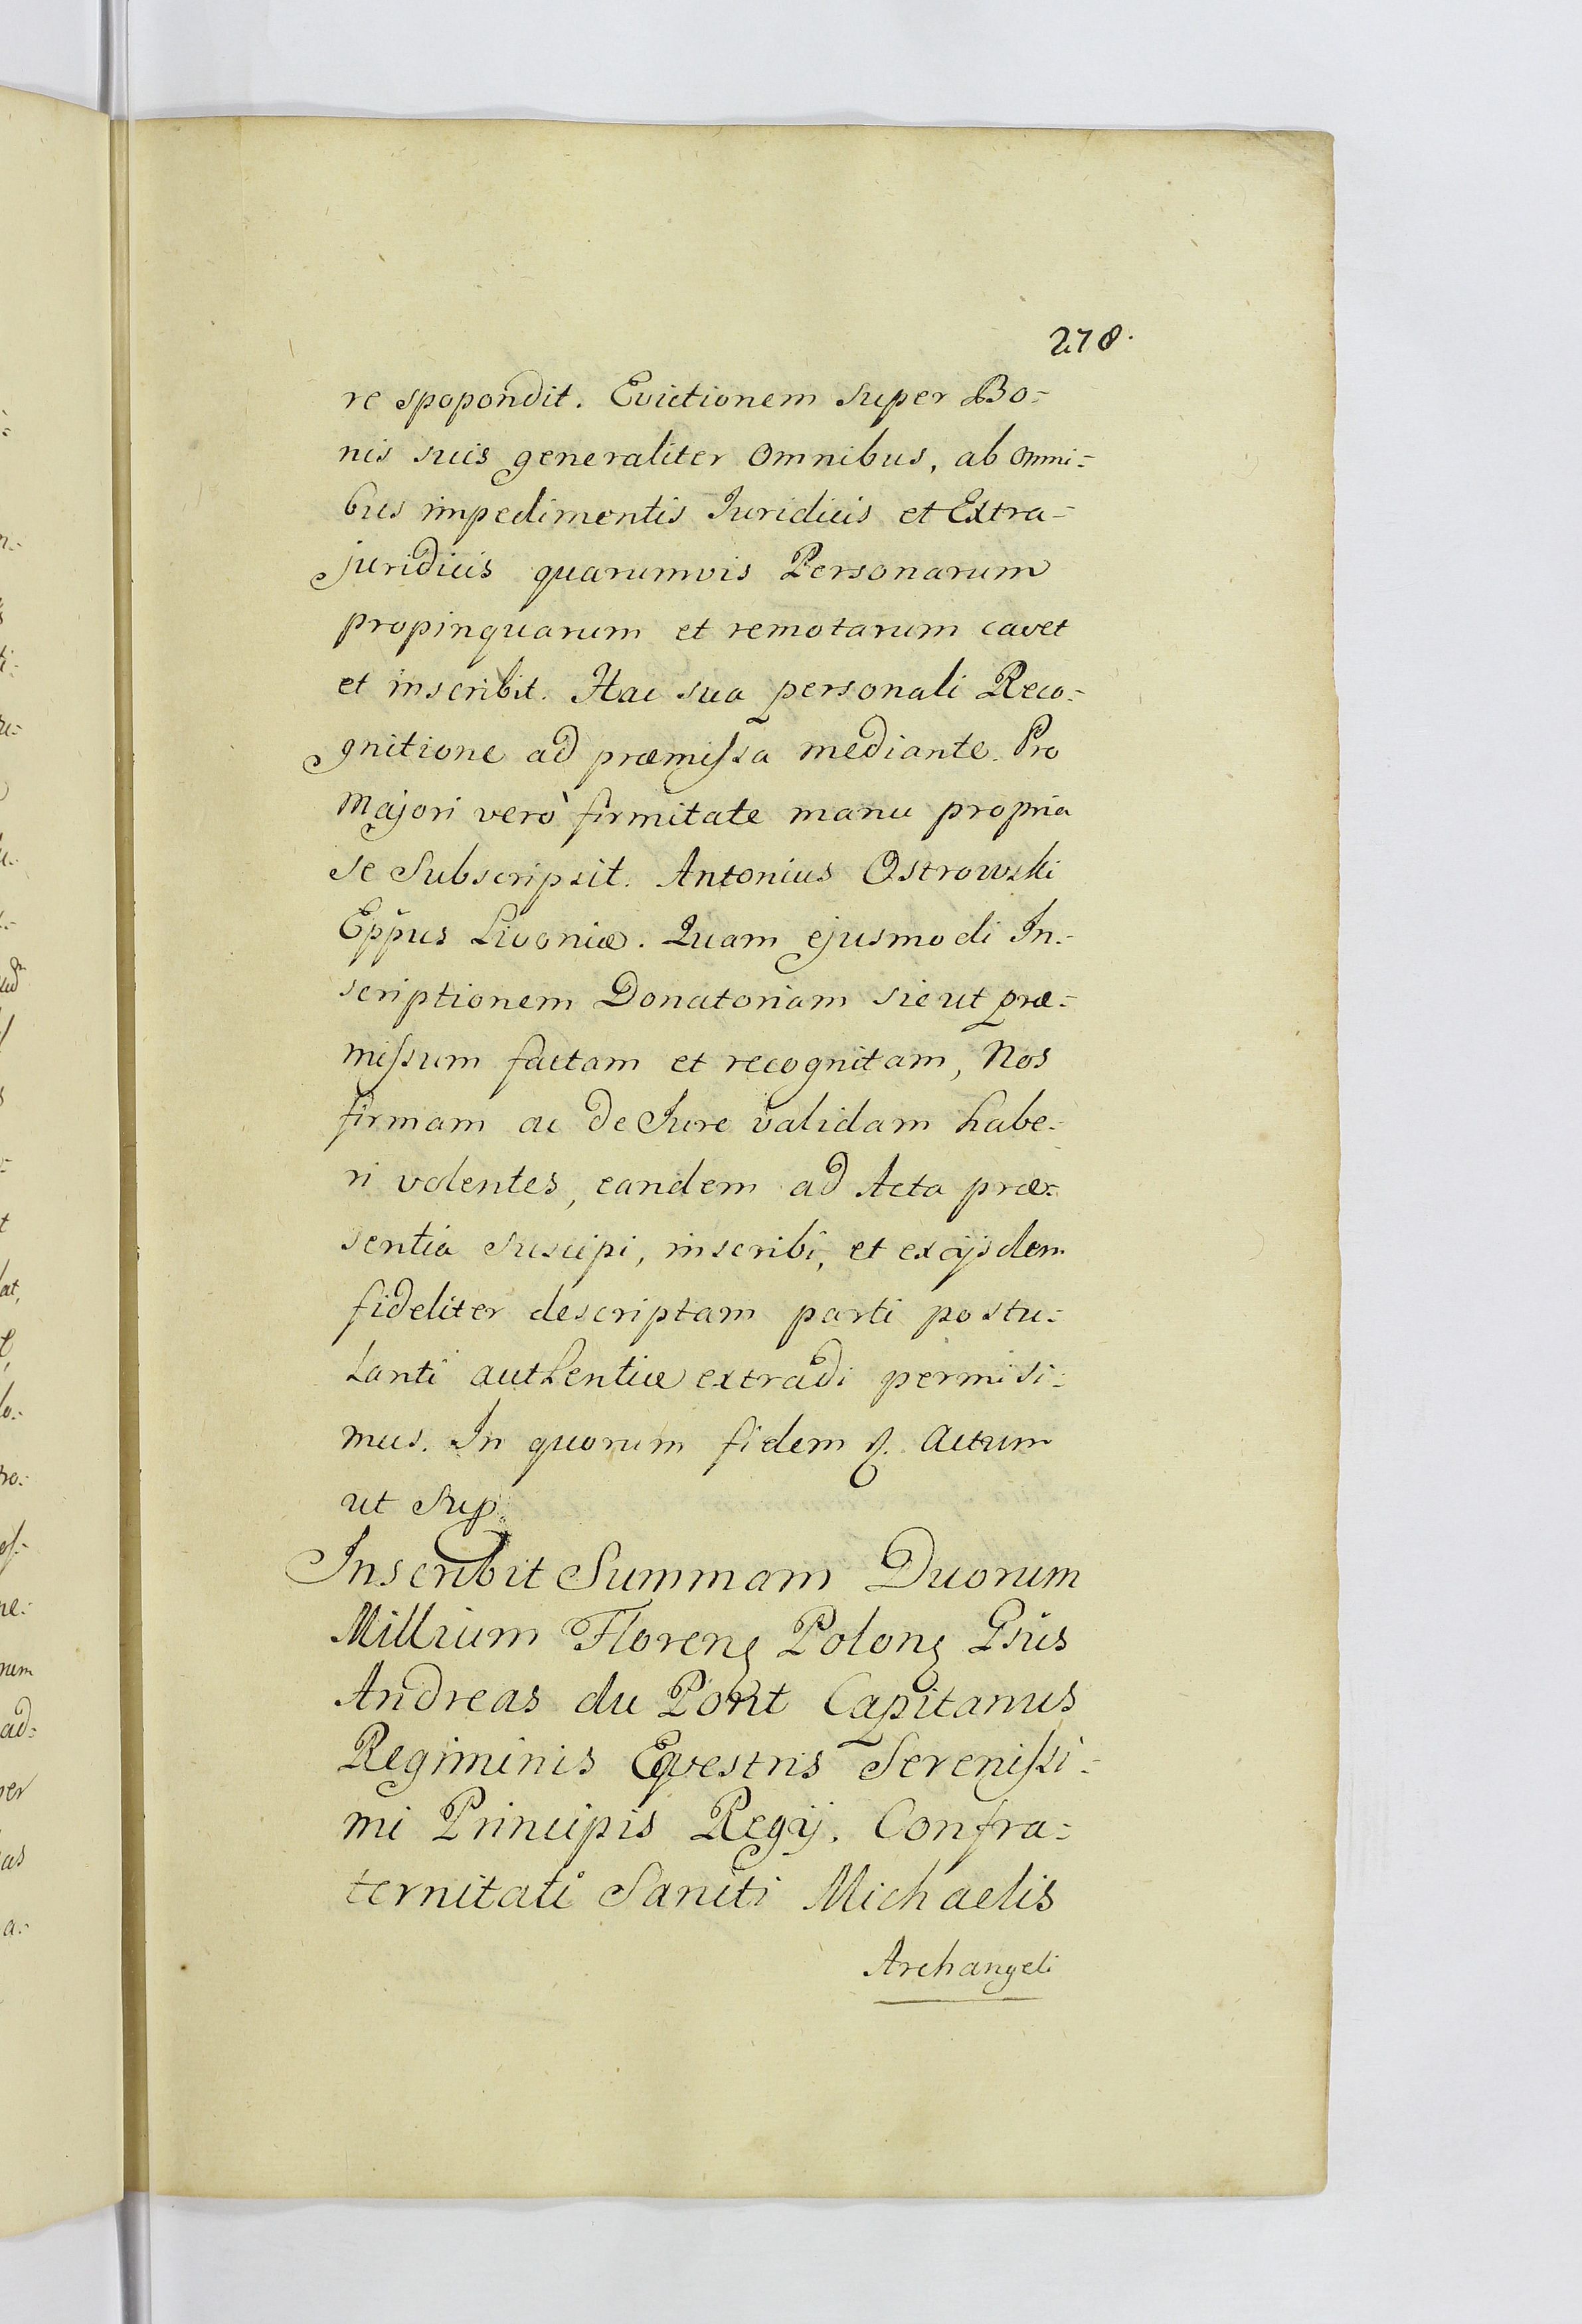 278.
re spopondit. Evictionem super Bo=
nis suis generaliter omnibus, ab omni=
bus impedimentis Juridicis et Extra=
juridicis quarumvis Personarum
propinquarum et remotarum cavet
et inscribit. Hac sua personali Reco=
gnitione ad præmissa mediante. Pro
Majori verò firmitate manu propria
se subscripsit. Antonius Ostrowski
Epp̃us Livoniæ. Quam ejusmodi In=
scriptionem Donatoriam sicut præ=
missum factam et recognitam, Nos
firmam ac de Jure validam habe=
ri volentes, eandem ad Acta præ=
sentia suscipi, inscribi, et ex ijsdem
fideliter descriptam parti postu=
lanti authentice extradi permisi=
mus. In quorum fidem &. Actum
ut sup.
Inscribit Summam Duorum
Millium Floreng Polong Gsus
Andreas du Pont Capitanus
Regiminis Eqvestris Serenissi=
mi Principis Regij. Confra=
ternitati Sancti Michaelis
Archangeli